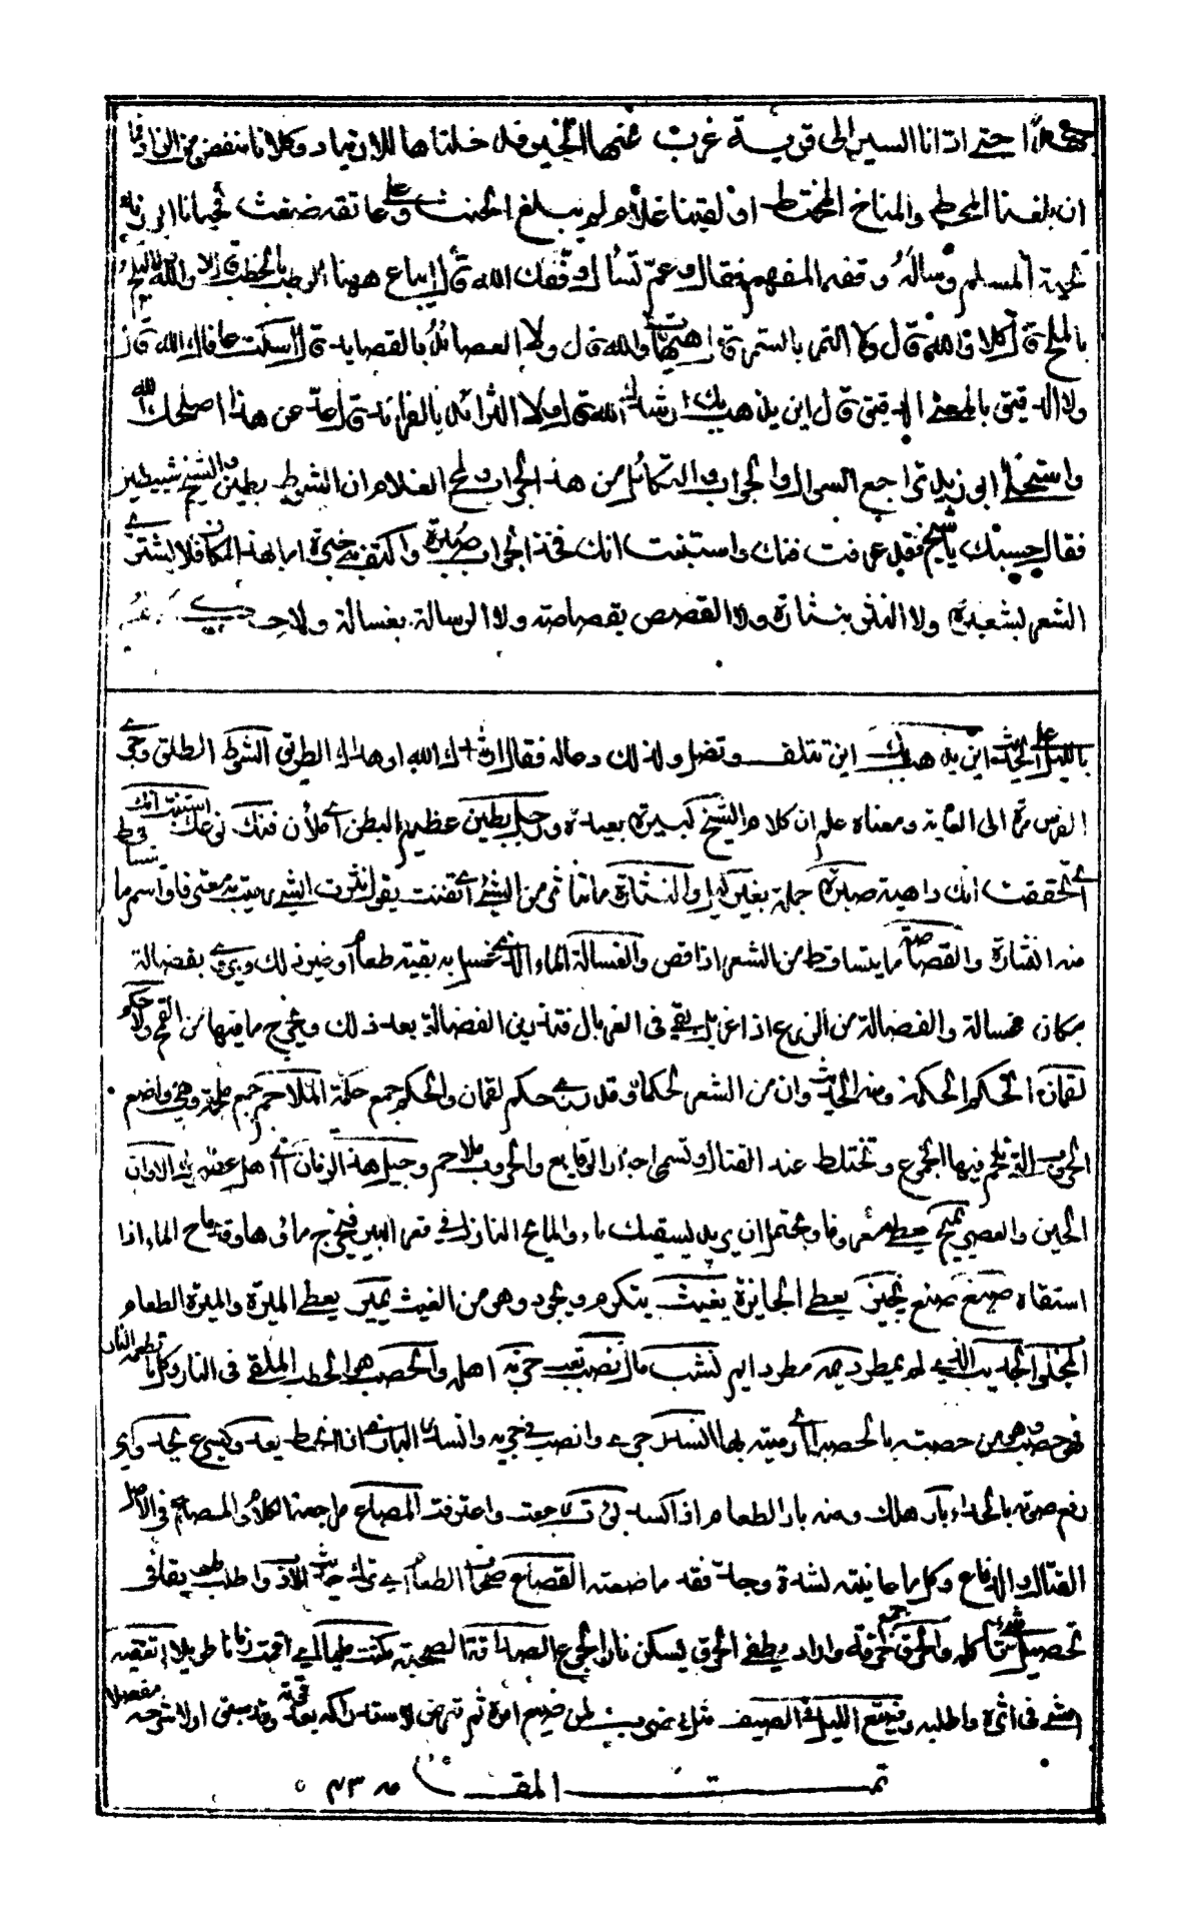 حتى ادانا السير الى قرية عزب عنها الخير فدخلناها للارتياد وكلانا منفض من الزاد فما
ان بلغنا المحط والمناخ المختط او لقينا غلام لم يبلغ الحنث وعلى عاتقه ضغث فحياه ابو زيد
تحية المسلم وساله وقفة المفهم فقال وعم تسأل وفقك الله قال ايباع ههنا الرطب بالخطب قال لا والله قال ولا البلح
بالملح قال كلا والله قال ولا الثمر بالسمر قال هيهات والله قال ولا العصائد بالقصايد قال اسكت عافاك الله قال
ولا الدقيق بالمعنى الدقيق قال اين يذهب بك ارشدك الله قال ولا الثرائد بالفرائد قال عد عن هذا اصلحك الله
واستحلى ابو زيد تراجع السوال والجواب والتكائل من هذا الجراب ولمح الغلام ان الشوط بطين والشيخ شيطين
فقال حسبك يا شيخ فقد عرفت فنك واستبنت انك فخذ الجواب صبرة واكتف به خبرة اما بهذا المكان فلا يشترى
الشعر بشعيرة ولا النثر بنثارة ولا القصص بقصاصة ولا الرسالة بغسالة ولا حكم
بالبلح اين يذهب بك اين تتلف وتضل ولذلك دعا له فقال ارشدك الله او هداك الطريق الشوط الطلق وجرى
الفرس مرة الى الغاية ومعناه علم ان كلام الشيخ كبيرة بعيدة ورجل بطين عظيم البطن اى ملآن فنك نوعك استبنت انك
اى تحققت انك داهية صبرة جملة بغير كيل والنثارة ما تناثر من الشئ اى تفتت يقول نثرت الشئ رميت به متفرقا واسم ما
منه النثارة والقصاصة ما يتساقط من الشعر اذا قص والغسالة الماء الذى يغسل به بقية طعام او غير ذلك ويروى بفضالة
مكان غسالة والفضالة من الزرع اذا غربل يبقى فى الغربال قدر نبى الفضالة بعد ذلك ويخرج ما فيها من القمح ولا حكم
لقمان الحكم الحكمة ومنه الحديث وان من الشعر لحكما وقد روى حكم لقمان والحكم جمع حكمة الملاحم جمع ملحمة وهى مواضع
الحروب التى تلحم فيها الجموع وتختلط عند القتال وتسمى اخبار الوقايع والحروب ملاحم وجيل هذا الزمان اى اهل عصره الاوان
الحين والعصر يميح يعطى معروفا ويحتمل ان يريد يسقيك ماء والمايح النازل فى قعر البير فيخرج ماؤها وقد ماح الماء اذا
استقاه صيغ صنع يجيز يعطى الجايزة يغيث يتكرم ويجود وهو من الغيث يمير يعطى الميرة والميرة الطعام
المجلوب الجديب الذى لم يمطر ديمة مطر دايم نشب مال نصب تعب حربه اهل والحصب هو الحطب الملقى فى النار وكل ما تطعمه النار
فهو حصب وهو من حصبت به بالحصباء اى رميته بها انسدر جرى وانصب فى جريه وانسدر البازى اذا انحط يعد ويسرع يحدو اى
رفع صوته بالحداء بار هلك ومنه بار الطعام اذا كسد لتى تراجعت واعترفت المصاع مراجعة الكلام والمصاع فى الاصل
القتال والدفاع وكل ما عانيته لشدة وجد فقد ماصعته القصاع صحاف الطعام اى ترك حديث الادب واطلب طعاما يقلفى
تحصيل شئ تأكله والحرق جمع حرقة واراد يطفى الحرق يسكن نار الجوع الصداقة الصحبة مكثت مليا اى اقمت زمانا طويلا اتعقبه
امشى فى اثره واطلبه وضيع اللبن فى الصيف مثل يضرب لمن ضيع امره ثم تعرض لاستدراكه بعد فوته وقد سبق اولا شرحه مفصلا
تمت المقـ ٤٣